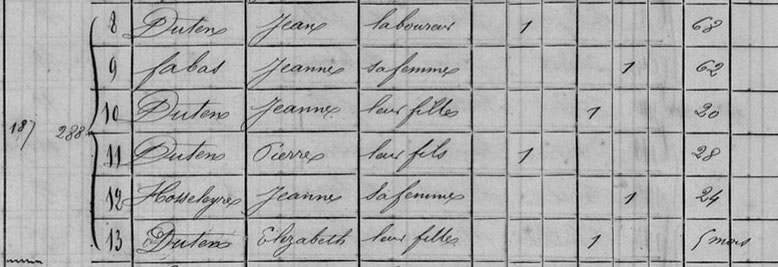 8 Duten Jean laboureur 1 68
9 fabas Jeanne sa femme 1 62
10 Duten Jeanne leur fille 1 20
187 288 11 Duten Pierre leur fils 1 28
12 Jeanne sa femme 1 24
13 Duten Elizabeth leur fille 1 5 mois